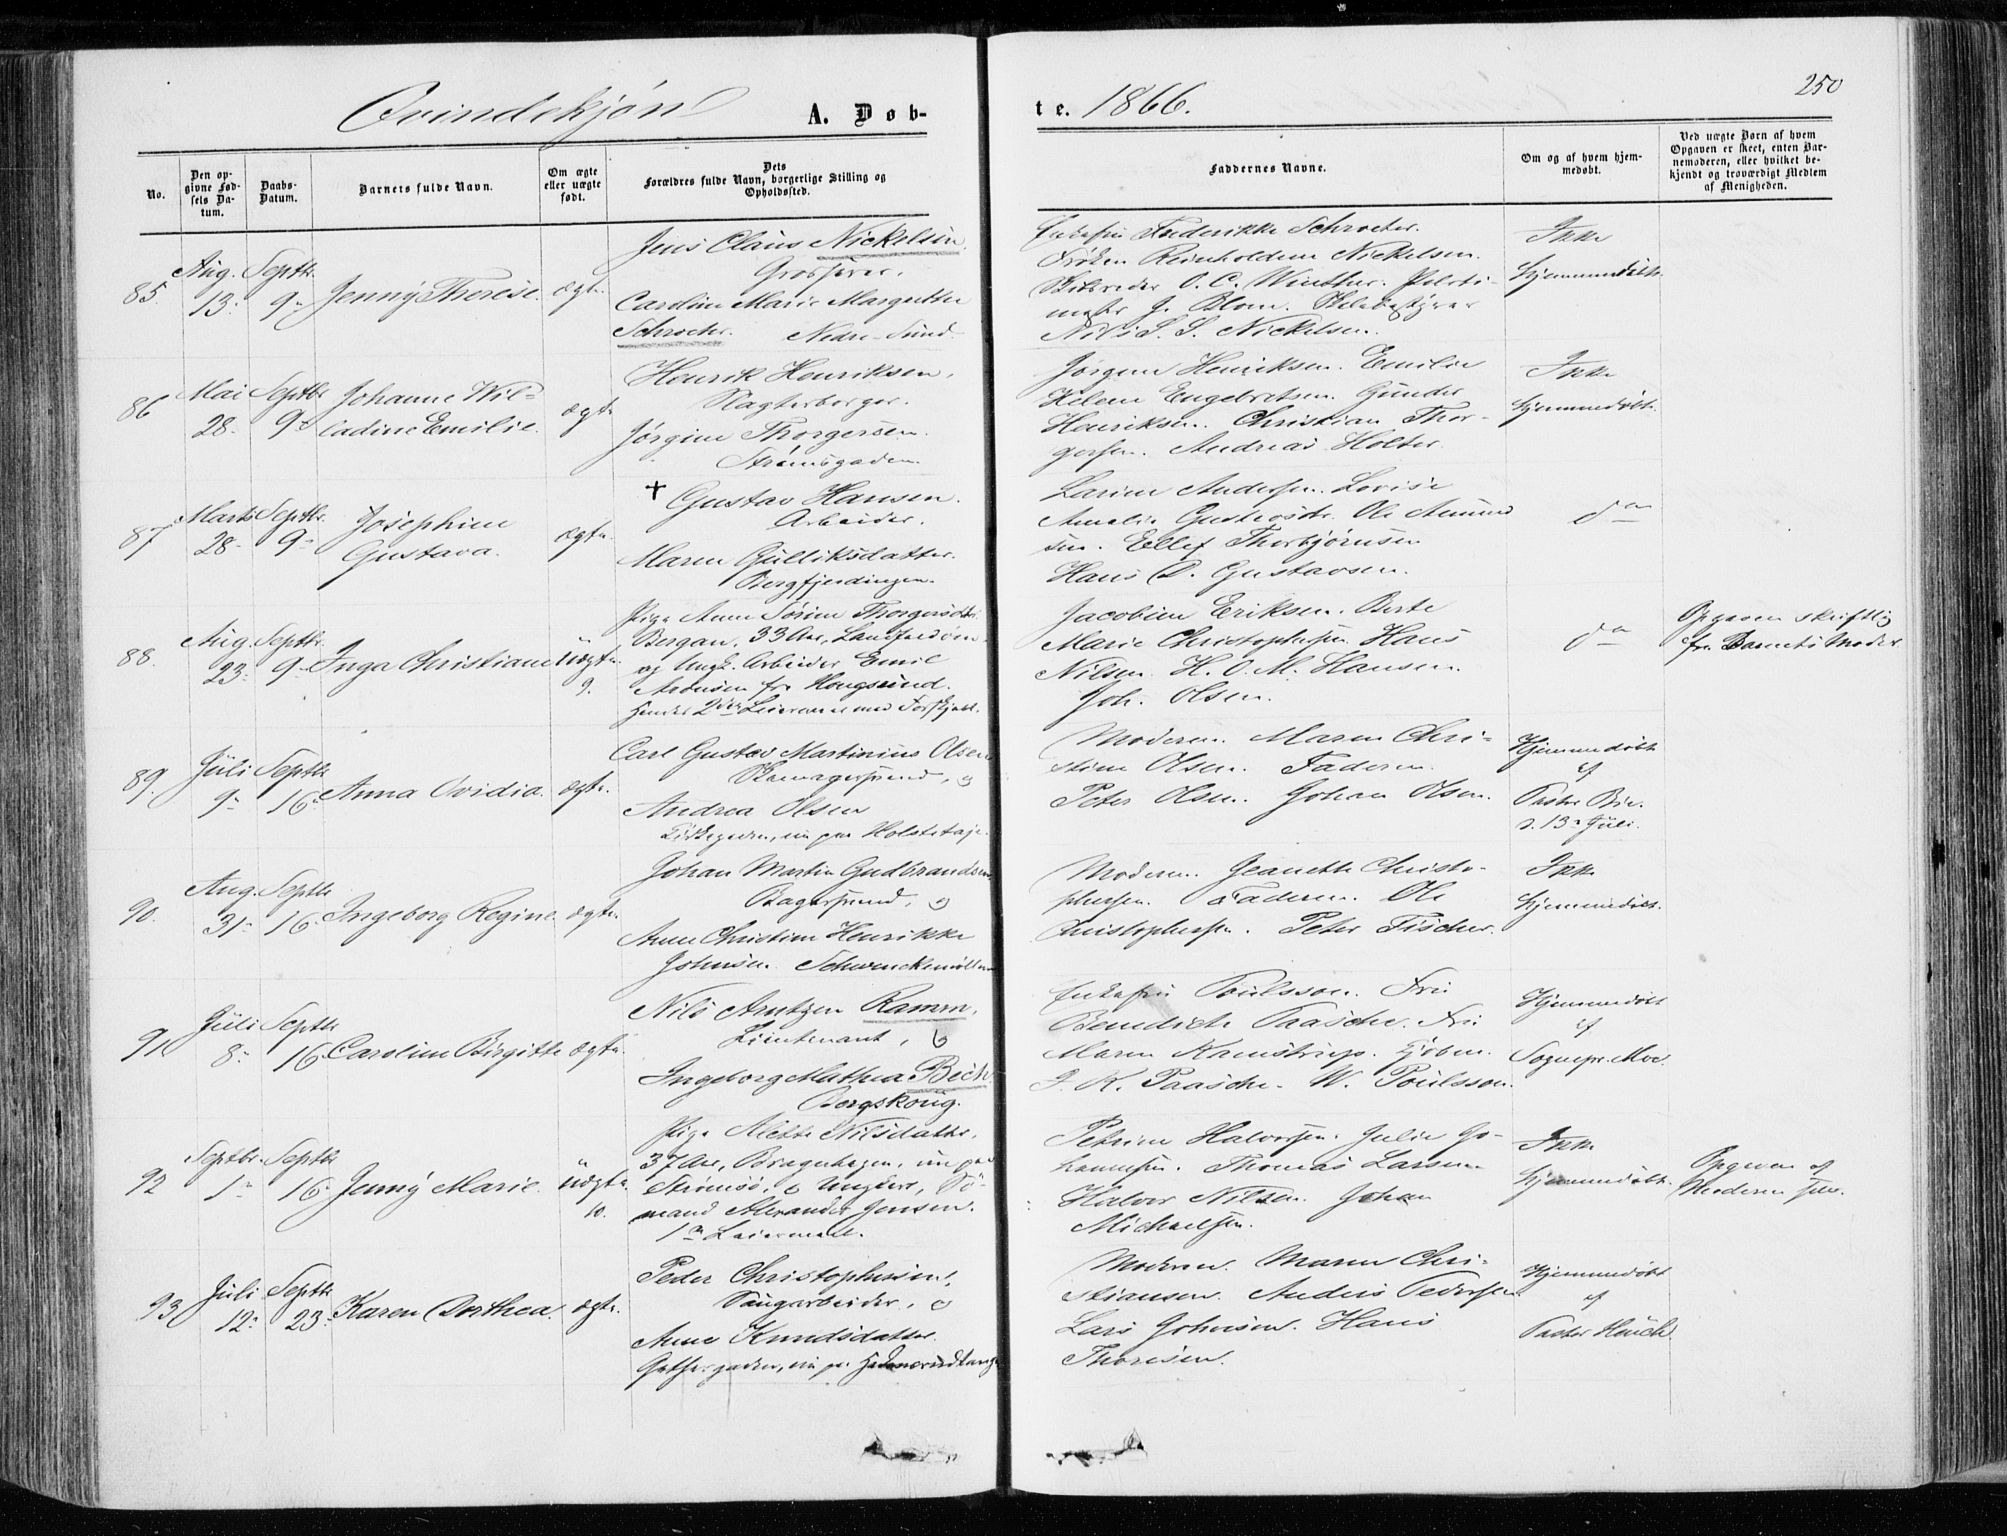 250
Qvindekjøn A. Døb-
te. 1866.
No.
Den op-
givne Fød-
sels Da-
tum.
Daabs-
Datum.
Barnets fulde Navn.
Om ægte
eller uægte
født.
Dets
Forældres fulde Navn, borgerlige Stilling og
Opholdssted.
Faddernes Navne.
Om og af hvem hjem-
medøbt.
Ved uægte Børn af hvem
Opgaven er skeet, enten Bar-
nemoderen, eller hvilket be-
kjendt og troværdigt Medlem
af Menigheden.
85.
Aug.
13.
Septbr.
9.
Jenny Therese.
ægte.
Jens Claus Nickelsen.
Grosserer.
Caroline Marie Margrethe
Schroeter. Nedre-Sund.
Enkefru Frederikke Schroeter.
Frøken Reinholdine Nickelsen.
Skibsreder O. C. Winther. Politi-
mester J. Blom.
Nils S. S. Nickelsen.
Ikke
hjemmedøbt.
86
Mai
28.
Septbr.
9.
Johanne Wil-
ladine Emilie.
ægte
Henrik Henriksen.
Slagterborger.
Jørgine Thorgersen.
Strømsgaden.
Jørgen Henriksen. Emilie
Helene Engebretsen. Gunder
Henriksen. Christian Thor-
gersen. Andreas Holter.
Ikke
hjemmedøbt.
87
Marts
28.
Septbr.
9.
Josephine
Gustava.
ægte.
† Gustav Hansen.
Arbeider.
Maren Gulliksdatter.
Bergfjerdingen.
Larine Andersen. Lovise
Amalie Gustavsdr. Ole Amund
sen. Ellef Thorbjørnsen
Hans O. Gustavsen.
do
88.
Aug.
23.
Septbr.
9.
Inga Christiane
uægte.
9.
Pige Anne Sørine Thorgersdtr.
Bergan, 33 Aar, Landfredøn
og Ungk. Arbeider Emil
fra Hougsund.
Hendes 2det Leiermaal med Forskjell.
Jacobine Eriksen. Berte
Marie Christophersen. Hans
Nilsen. H. O. M. Hansen.
Joh. Olsen.
do
Opgaven skriftlig
fra Barnets Moder.
89.
Juli
9.
Septbr.
16.
Anna Ovidia.
ægte.
Carl Gustav Martinius Olsen
Skomagersvend, og
Andrea Olsen
Kirkegaden, nu paa
Moderen. Maren Chri-
stine Olsen. Faderen.
Peter Olsen. Johan Olsen.
Hjemmedøbt
af
Pastor
d. 13de Juli.
90.
Aug.
31.
Septbr.
16.
Ingeborg Regine.
ægte.
Johan Martin Gudbrandsen
Bagersvend, og
Anne Christine Henrikke
Johnsen.
Moderen. Jeanette Christo-
phersen. Faderen. Ole
Christophersen. Peter Fischer.
Ikke
hjemmedøbt.
91.
Juli
8.
Septbr.
16.
Caroline Birgitte
ægte.
Nils Arntzen Ramm,
Lieutenant, og
Ingeborg Mathea Bech.
Bergskoug.
Enkefru Poulsson. Fru
Benedicte Paasche. Fru
Maren Kamstrup. Kjøbm.
J. K. Paasche. W. Poulsson.
Hjemmedøbt
af
Sognepr. Moe.
92
Septbr.
1.
Septbr.
16.
Jenny Marie.
uægte.
10.
Pige Mette Nilsdatter,
37 Aar, Bragerhagen, nu paa
Strømsø, og Ungkarl, Sø-
mand Alexander Jensen.
1ste Leiermaal.
Petrine Halvorsen. Julie Jo-
hannesen. Thomas Larsen.
Halvor Nilsen. Johan
Michaelsen.
Ikke
hjemmedøbt.
Opgaven af
Moderen selv.
93
Juli
12.
Septbr.
23.
Karen Dorthea.
ægte.
Peder Christophersen,
Saugarbeider, og
Anne Knudsdatter.
Moderen. Maren Chri-
stiansen. Anders Pedersen
Lars Johnsen. Hans
Thoresen.
Hjemmedøbt
af
Pastor Heuch.